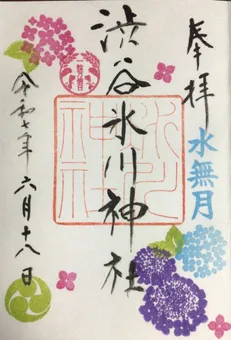 奉拝
水無月
渋谷氷川神社
氷川神社
令和七年六月十八日